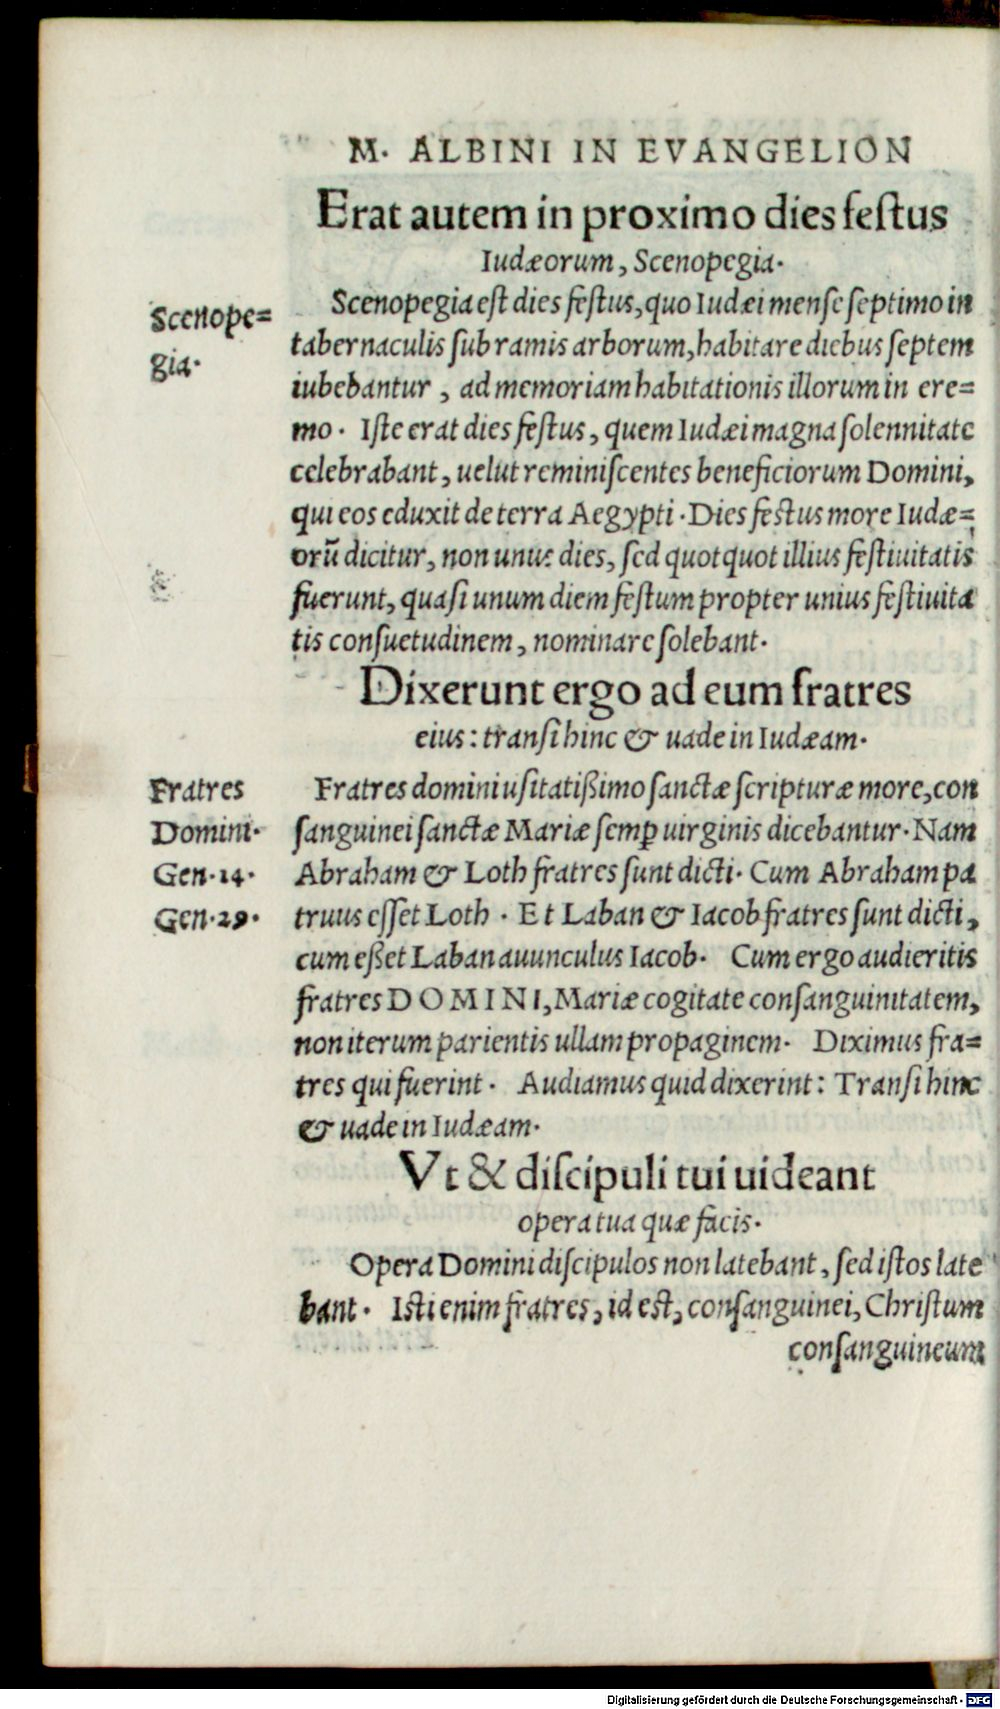 M. ALBINI IN EVANGELION
Erat autem in proximo dies festus
Iudæorum, Scenopegia.
Scenope=
gia.
Scenopegia est dies festus, quo Iudæi mense septimo in
tabernaculis sub ramis arborum, habitare diebus septem
iubebantur, ad memoriam habitationis illorum in ere=
mo. Iste erat dies festus, quem Iudæi magna solennitate
celebrabant, uelut reminiscentes beneficiorum Domini,
qui eos eduxit de terra Aegypti. Dies festus more Iudæ=
orū dicitur, non unus dies, sed quotquot illius festiuitatis
fuerunt, quasi unum diem festum propter unius festiuita
tis consuetudinem, nominare solebant.
Dixerunt ergo ad eum fratres
eius: transi hinc & uade in Iudæam.
Fratres
Domini.
Gen. 14.
Gen. 29.
Fratres domini usitatißimo sanctæ scripturæ more, con
sanguinei sanctæ Mariæ semꝑ uirginis dicebantur. Nam
Abraham & Loth fratres sunt dicti. Cum Abraham pa
truus esset Loth. Et Laban & Iacob fratres sunt dicti,
cum eßet Laban auunculus Iacob. Cum ergo audieritis
fratres DOMINI, Mariæ cogitate consanguinitatem,
non iterum parientis ullam propaginem. Diximus fra=
tres qui fuerint. Audiamus quid dixerint: Transi hinc
& uade in Iudæam.
Vt & discipuli tui uideant
opera tua quæ facis.
Opera Domini discipulos non latebant, sed istos late
bant. Isti enim fratres, id est, consanguinei, Christum
consanguineum
Digitalisierung gefördert durch die Deutsche Forschungsgemeinschaft - DFG